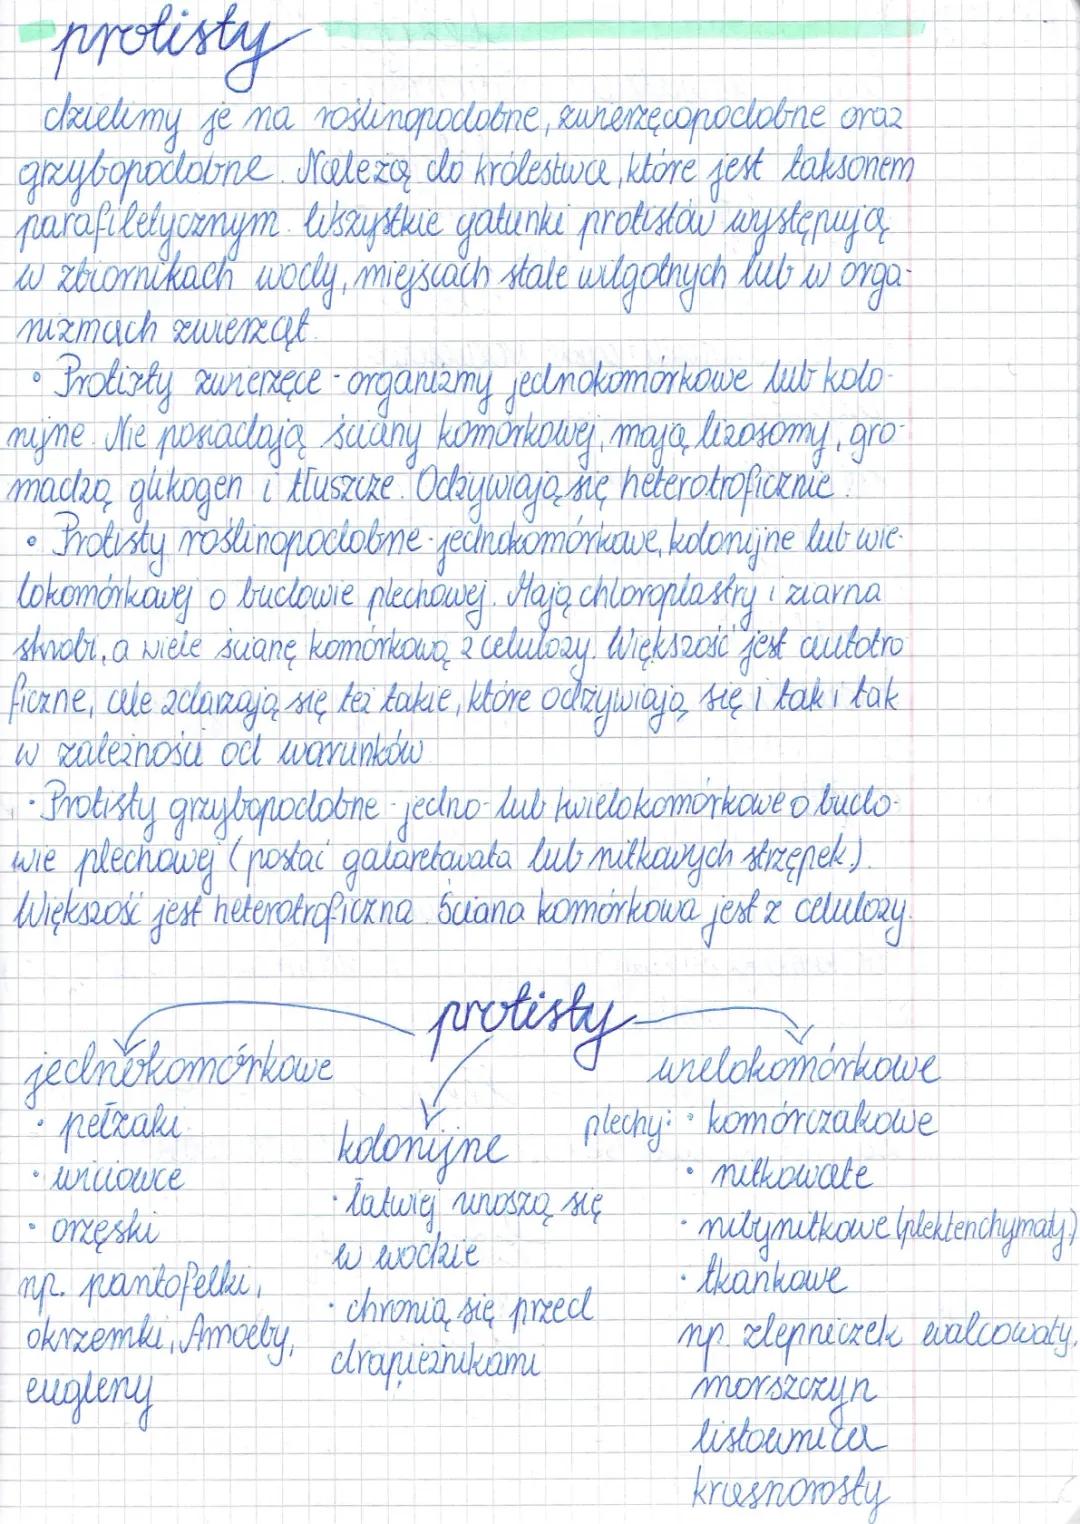 protisty
dzielimy je na roślinopodobne, zwierzęcopodobne oraz
grzybopodobne. Należą do królestwa, które jest taksonem
parafiletycznym. Wszystkie gatunki protistów występują
w zbiornikach wody, miejscach stale wilgotnych lub w orga-
nizmach zwierząt.
• Protisty zwierzęce - organizmy jednokomórkowe lub kolo-
nijne. Nie posiadają ściany komórkowej, mają lizosomy, gro-
madzą glikogen i tłuszcze. Odżywiają się heterotroficznie.
• Protisty roślinopodobne - jednokomórkowe, kolonijne lub wie-
lokomórkowej o budowie plechowej. Mają chloroplastry i ziarna
skrobi, a wiele ścianę komórkową z celulozy. Większość jest autotro
ficzne, ale zdarzają się też takie, które odżywiają się i tak i tak
w zależności od warunków
• Protisty grzybopodobne - jedno- lub wielokomórkowe o budo-
wie plechowej (postać galaretowata lub nitkowych strzępek).
Większość jest heterotroficzna. Ściana komórkowa jest z celulozy.
protisty
jednokomórkowe
• pełzaki
• wiciowce
• orzęski
np. pantofelki,
okrzemki, Amoeby,
eugleny
kolonijne
• łatwiej unoszą się
w wodzie
• chronią się przed
drapieżnikami
wielokomórkowe
plechy: • komórczakowe
• nitkowate
• nibynitkowe (plektenchymaty)
• tkankowe
np. zlepniczek walcowaty,
morszczyn
listownica
krasnorosty